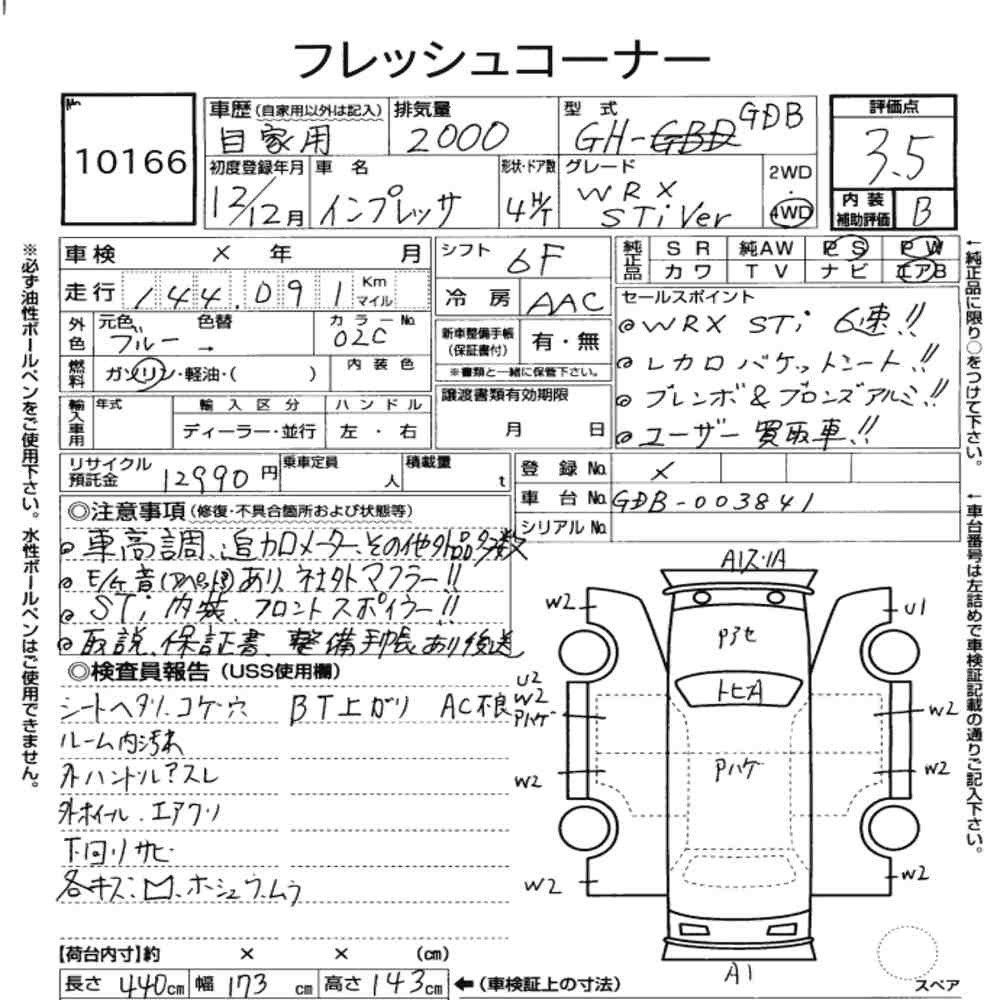 フレッシュコーナー
10166
車歴（自家用以外は記入） 自家用
排気量 2000
型 式 GH-GBD GDB
評価点 3.5
初度登録年月 12/12月
車 名 インプレッサ
形状・ドア数 4 H/T
グレード WRX STi Ver
2WD ・ 4WD
内装補助評価 B
車検 × 年 月
走行 144,091 Km マイル
シフト 6F
冷 房 AAC
純正品 SR 純AW PS PW
カワ TV ナビ エアB
外色 元色 ブルー → 色替
カラーNo. 02C
新車整備手帳（保証書付） 有・無
※書類と一緒に保管下さい。
燃料 ガソリン・軽油・（ ）
内 装 色
セールスポイント
◎WRX STi 6速!!
◎レカロバケットシート!!
◎ブレンボ&ブロンズアルミ!!
◎ユーザー買取車!!
輸入車用 年式 輸 入 区 分 ディーラー・並行
ハ ン ド ル 左 ・ 右
譲渡書類有効期限 月 日
リサイクル預託金 12990円
乗車定員 人
積載量 t
登 録 No. ×
車 台 No. GDB-003841
シリアル No.
◎注意事項（修復・不具合箇所および状態等）
◎車高調、追加メーター、その他外品多数
◎モ/ケ音(アペックス)あり 社外マフラー!!
◎STi内装、フロントスポイラー!!
◎取説、保証書、整備手帳あり後送
◎検査員報告（USS使用欄）
シートヘタリ.コゲ穴 BT上ガリ AC不良
ルーム内汚れ
外ハンドルアスレ
外ホイール.エアクリ
下回リサビ
各キズ.凹.ホシュウ.ムラ
A1ズリA
W2
U1
Pアセ
トビA
U2
W2
Pハゲ
W2
Pハゲ
W2
W2
W2
W2
A1
スペア
【荷台内寸】約 × × （cm）
長さ 440cm 幅 173cm 高さ 143cm ←（車検証上の寸法）
※必ず油性ボールペンをご使用下さい。水性ボールペンはご使用できません。
←純正品に限り○をつけて下さい。
←車台番号は左詰めで車検証記載の通りご記入下さい。